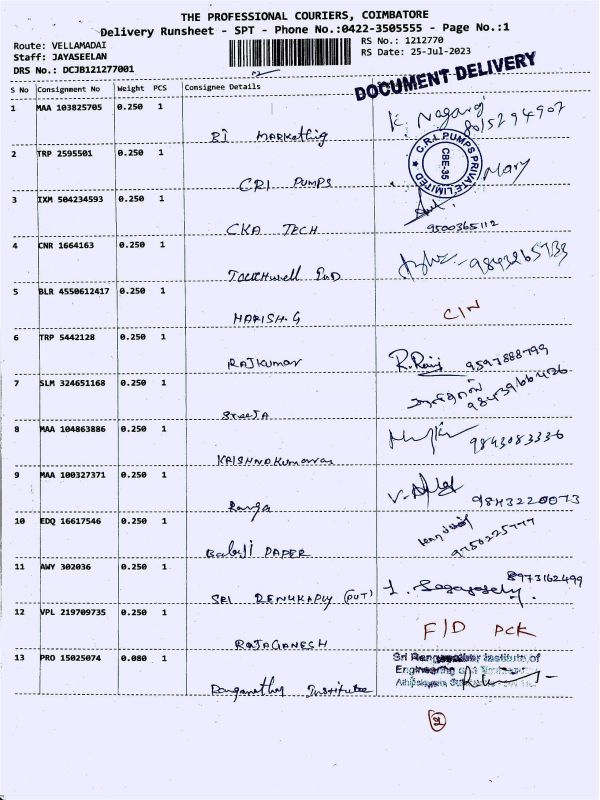 THE PROFESSIONAL COURIERS, COIMBATORE
Delivery Runsheet - SPT - Phone No.:0422-3505555 - Page No.:1
Route: VELLAMADAI
RS No.: 1212770
Staff: JAYASEELAN
RS Date: 25-Jul-2023
DRS No.: DCJB121277001
DOCUMENT DELIVERY
S No Consignment No Weight PCS Consignee Details
1 MAA 103825705 0.250 1
BI Marketing K. Nagaraj 8015294907
2 TRP 2595501 0.250 1
CRI PUMPS Mary
C.R.I. PUMPS PRIVATE LIMITED
CBE-35
3 IXM 504234593 0.250 1
CKA TECH 9500365112
4 CNR 1664163 0.250 1
Touchwell InD
5 BLR 4550612417 0.250 1
HARISH.G C/N
6 TRP 5442128 0.250 1
RAJKumar R. Ravi 9597888799
7 SLM 324651168 0.250 1
SreeJA 9843966436
8 MAA 104863886 0.250 1
KRISHNAKumaran 9843083336
9 MAA 100327371 0.250 1
Ranga 9843220073
10 EDQ 16617546 0.250 1
Babuji PAPER 9750225777
11 AWY 302036 0.250 1
SRI RENUKAPLY (PVT) 8973162499
12 VPL 219709735 0.250 1
RAJAGANESH F/D PCK
13 PRO 15025074 0.080 1
Ranganathar Institute
Sri Ranganathar Institute of
Engineering and
2